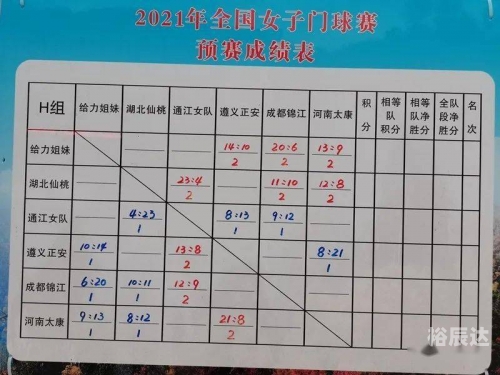 2021年全国女子门球赛
预赛成绩表
H组 给力姐妹 湖北仙桃 通江女队 遵义正安 成都锦江 河南太康 积分 相等队积分 相等队净胜分 全队段净胜分 名次
给力姐妹 —— —— 14:10 20:6 13:9
2 2 2
湖北仙桃 —— 23:4 —— 11:10 12:8
2 2 2
通江女队 —— 4:23 8:13 9:12 ——
1 1 1
遵义正安 10:14 —— 13:8 —— 8:21
1 2 1
成都锦江 6:20 10:11 12:9 —— ——
1 1 2
河南太康 9:13 8:12 —— 21:8 ——
1 1 2
裕辰达